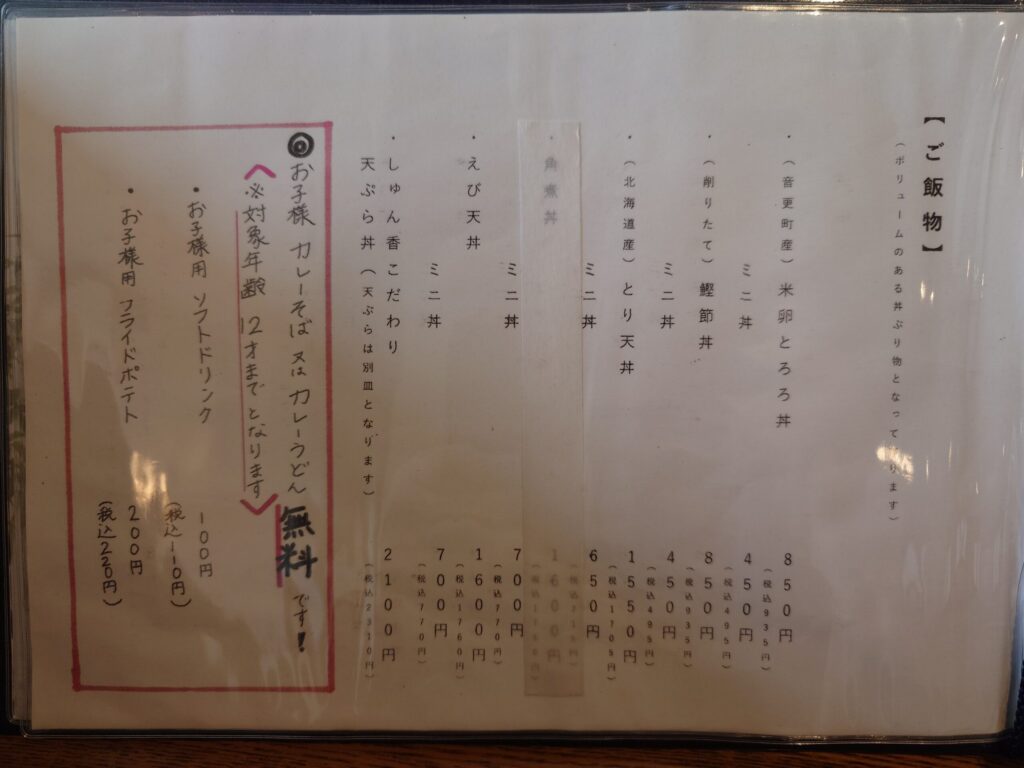 【ご飯物】
(ボリュームのある丼ぶり物となっております)
・(音更町産)米卵とろろ丼 850円
(税込935円)
ミニ丼 450円
(税込495円)
・(削りたて)鰹節丼 850円
(税込935円)
ミニ丼 450円
(税込495円)
・(北海道産)とり天丼 1550円
(税込1705円)
ミニ丼 650円
(税込715円)
・角煮丼 1600円
(税込1760円)
ミニ丼 700円
(税込770円)
・えび天丼 1600円
(税込1760円)
ミニ丼 700円
(税込770円)
・しゅん香こだわり 2100円
天ぷら丼(天ぷらは別皿となります) (税込2310円)
◎お子様 カレーそば 又は カレーうどん 無料 です!
〈※対象年齢 12才までとなります〉
・お子様用 ソフトドリンク 100円
(税込110円)
・お子様用 フライドポテト 200円
(税込220円)